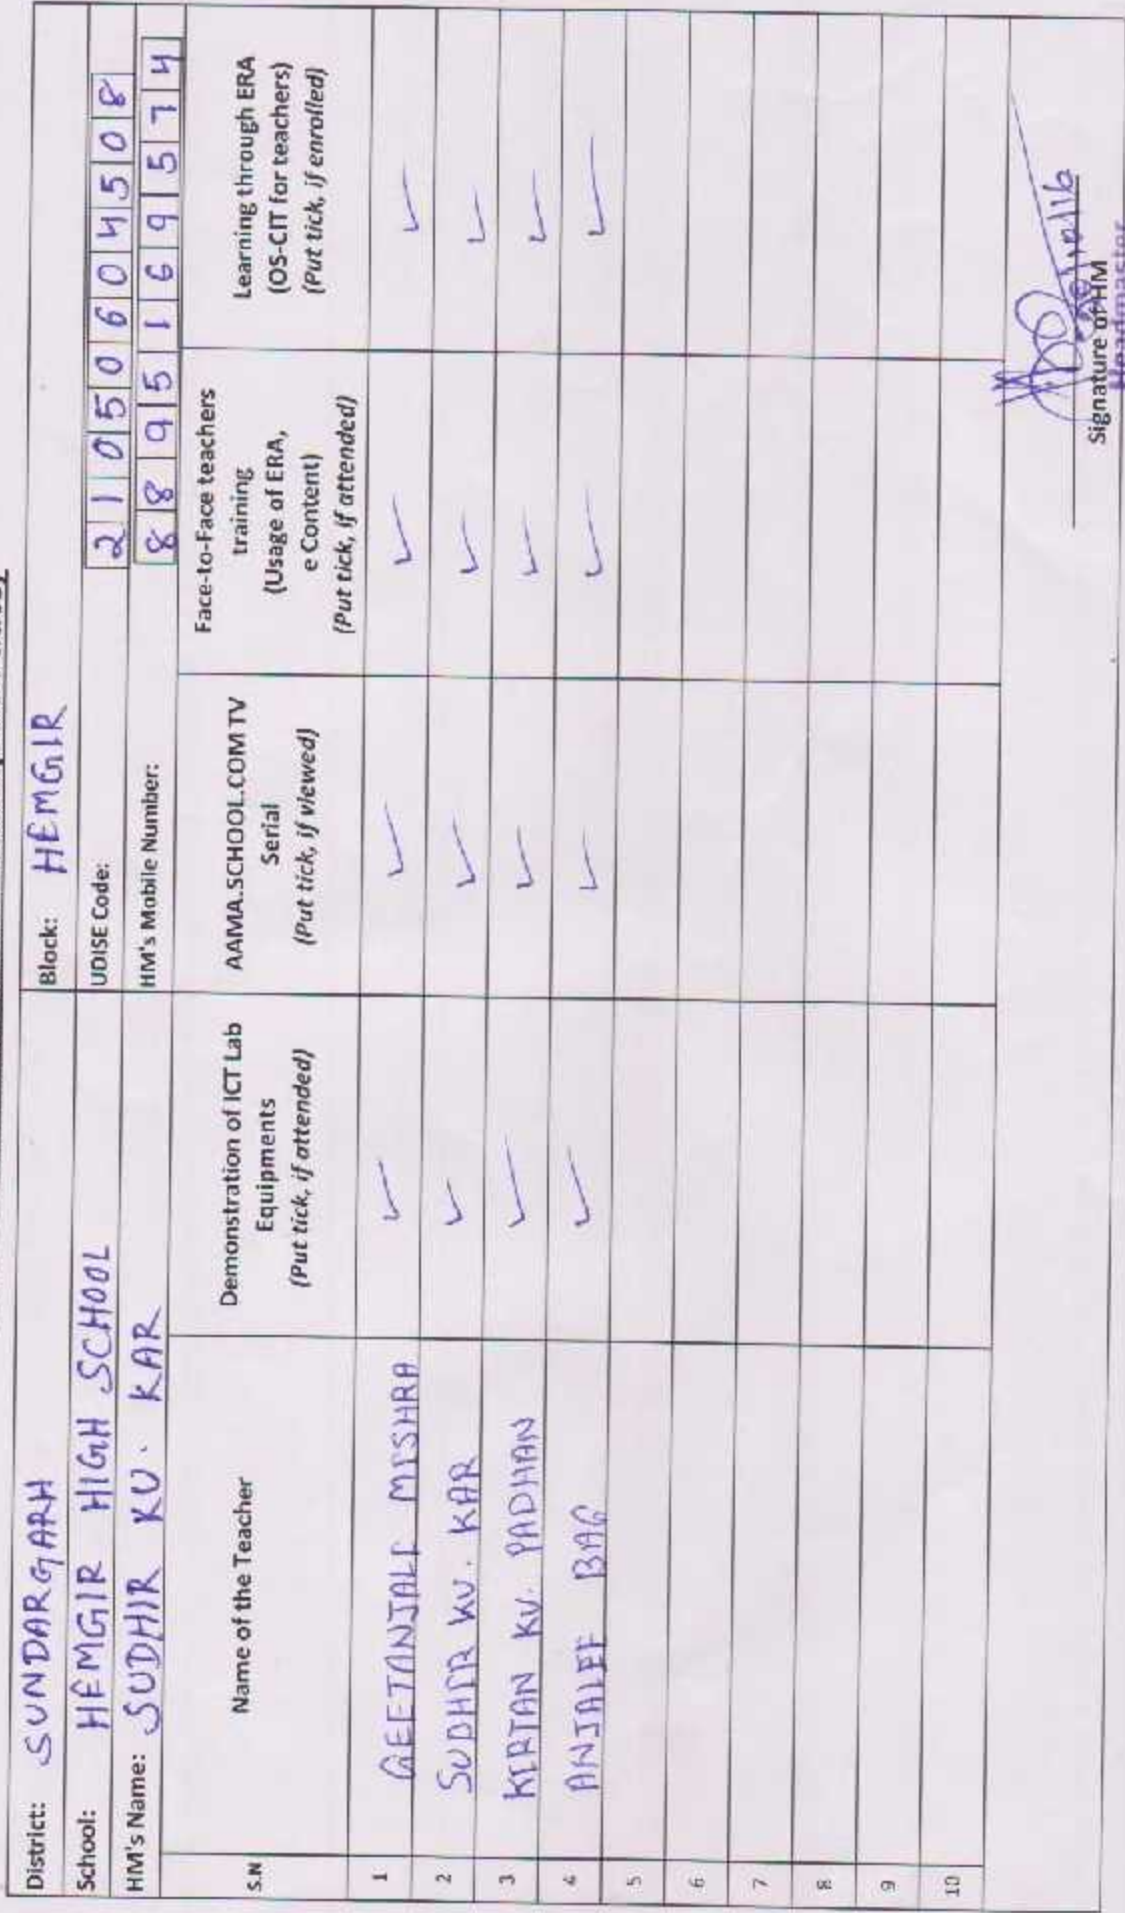 District: SUNDARGARH Block: HEMGIR
School: HEMGIR HIGH SCHOOL UDISE Code: 21050604508
HM's Name: SUDHIR KU. KAR HM's Mobile Number: 8895169574
S.N Name of the Teacher Demonstration of ICT Lab Equipments (Put tick, if attended) AAMA.SCHOOL.COM TV Serial (Put tick, if viewed) Face-to-Face teachers training (Usage of ERA, e Content) (Put tick, if attended) Learning through ERA (OS-CIT for teachers) (Put tick, if enrolled)
1 GEETANJALI MISHRA ✓ ✓ ✓ ✓
2 SUDHIR KU. KAR ✓ ✓ ✓ ✓
3 KIRTAN KU. PADHAN ✓ ✓ ✓ ✓
4 ANJALEE BAG ✓ ✓ ✓ ✓
5
6
7
8
9
10
Signature of HM
Headmaster